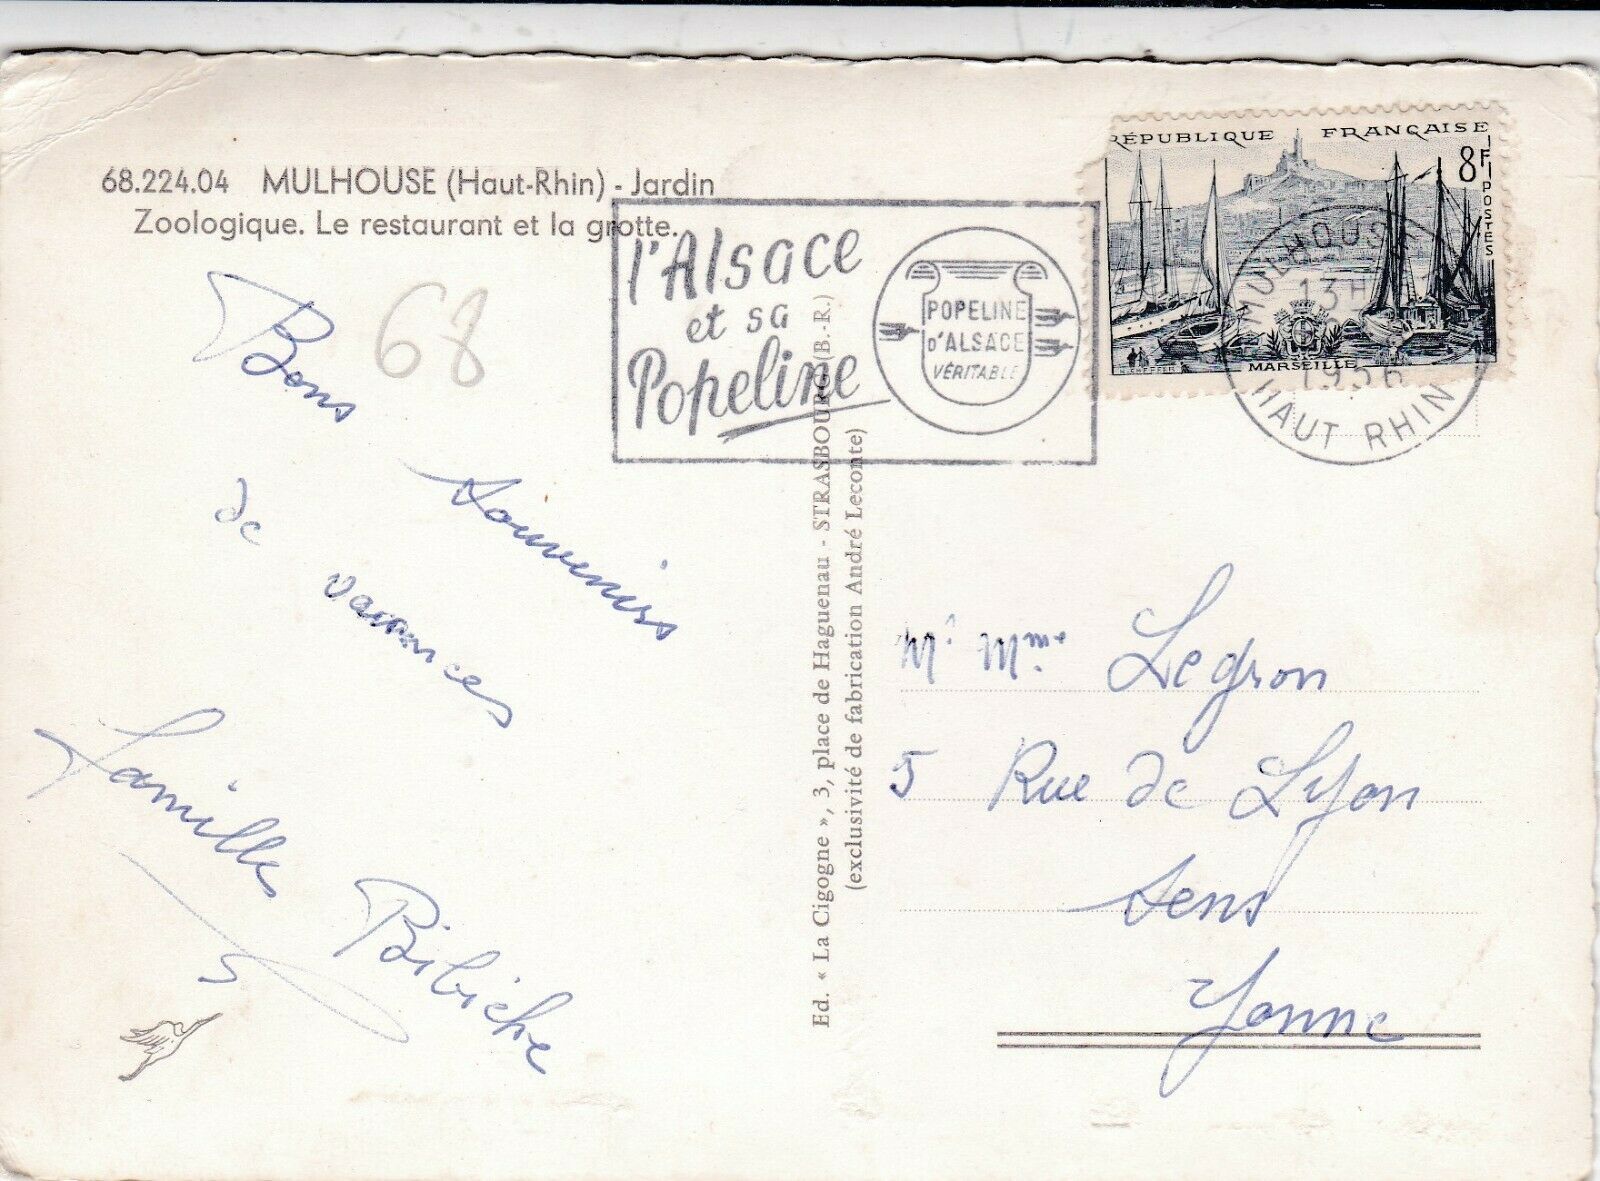 68.224.04 MULHOUSE (Haut-Rhin) - Jardin
Zoologique. Le restaurant et la grotte.
68
Bons souvenirs
de vacances
Famille Bibiche
l'Alsace
et sa
Popeline
POPELINE
D'ALSACE
VÉRITABLE
RÉPUBLIQUE FRANÇAISE
8F
POSTES
MARSEILLE
MULHOUSE
13H
1956
HAUT RHIN
Ed. « La Cigogne », 3, place de Haguenau - STRASBOURG (B.-R.)
(exclusivité de fabrication André Leconte)
Mr Mme Legron
5 Rue de Lyon
Sens
Yonne